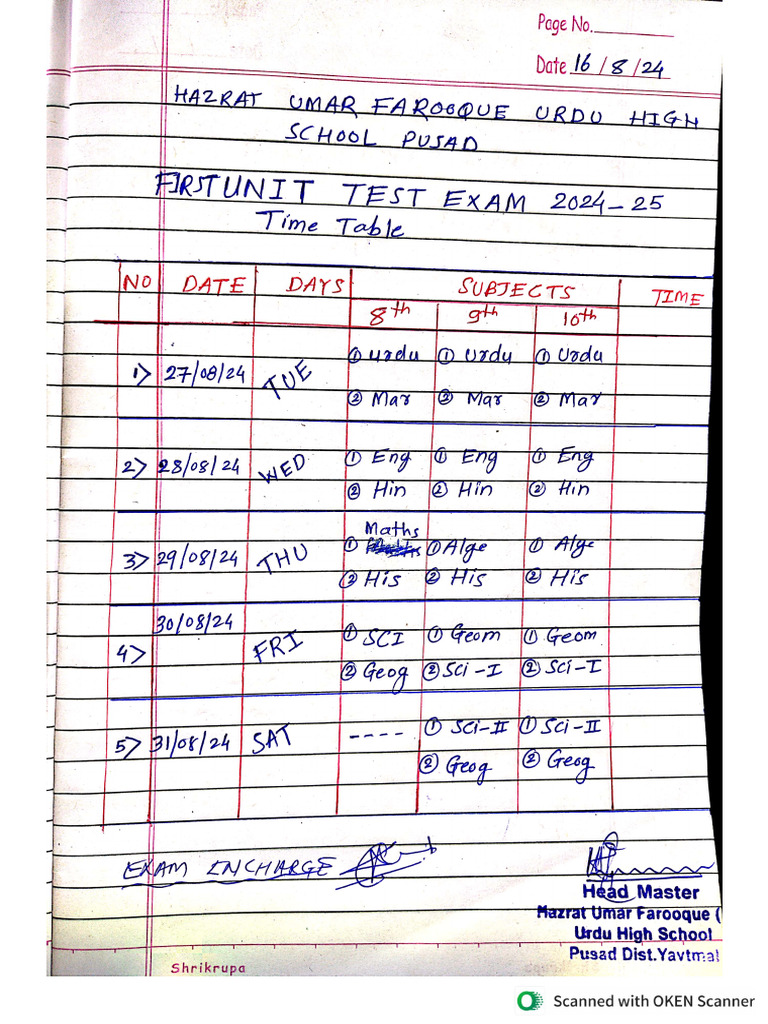 Page No.
Date 16/8/24
HAZRAT UMAR FAROOQUE URDU HIGH
SCHOOL PUSAD
FIRST UNIT TEST EXAM 2024-25
Time Table
NO DATE DAYS SUBJECTS TIME
8th 9th 10th
1> 27/08/24 TUE ① Urdu ① Urdu ① Urdu
② Mar ② Mar ② Mar
2> 28/08/24 WED ① Eng ① Eng ① Eng
② Hin ② Hin ② Hin
3> 29/08/24 THU ① Maths ① Alge ① Alge
② His ② His ② His
4> 30/08/24 FRI ① SCI ① Geom ① Geom
② Geog ② Sci-I ② Sci-I
5> 31/08/24 SAT ---- ① Sci-II ① Sci-II
② Geog ② Geog
EXAM ENCHARGE
Head Master
Hazrat Umar Farooque (
Urdu High School
Pusad Dist.Yavtmal
Shrikrupa
Scanned with OKEN Scanner